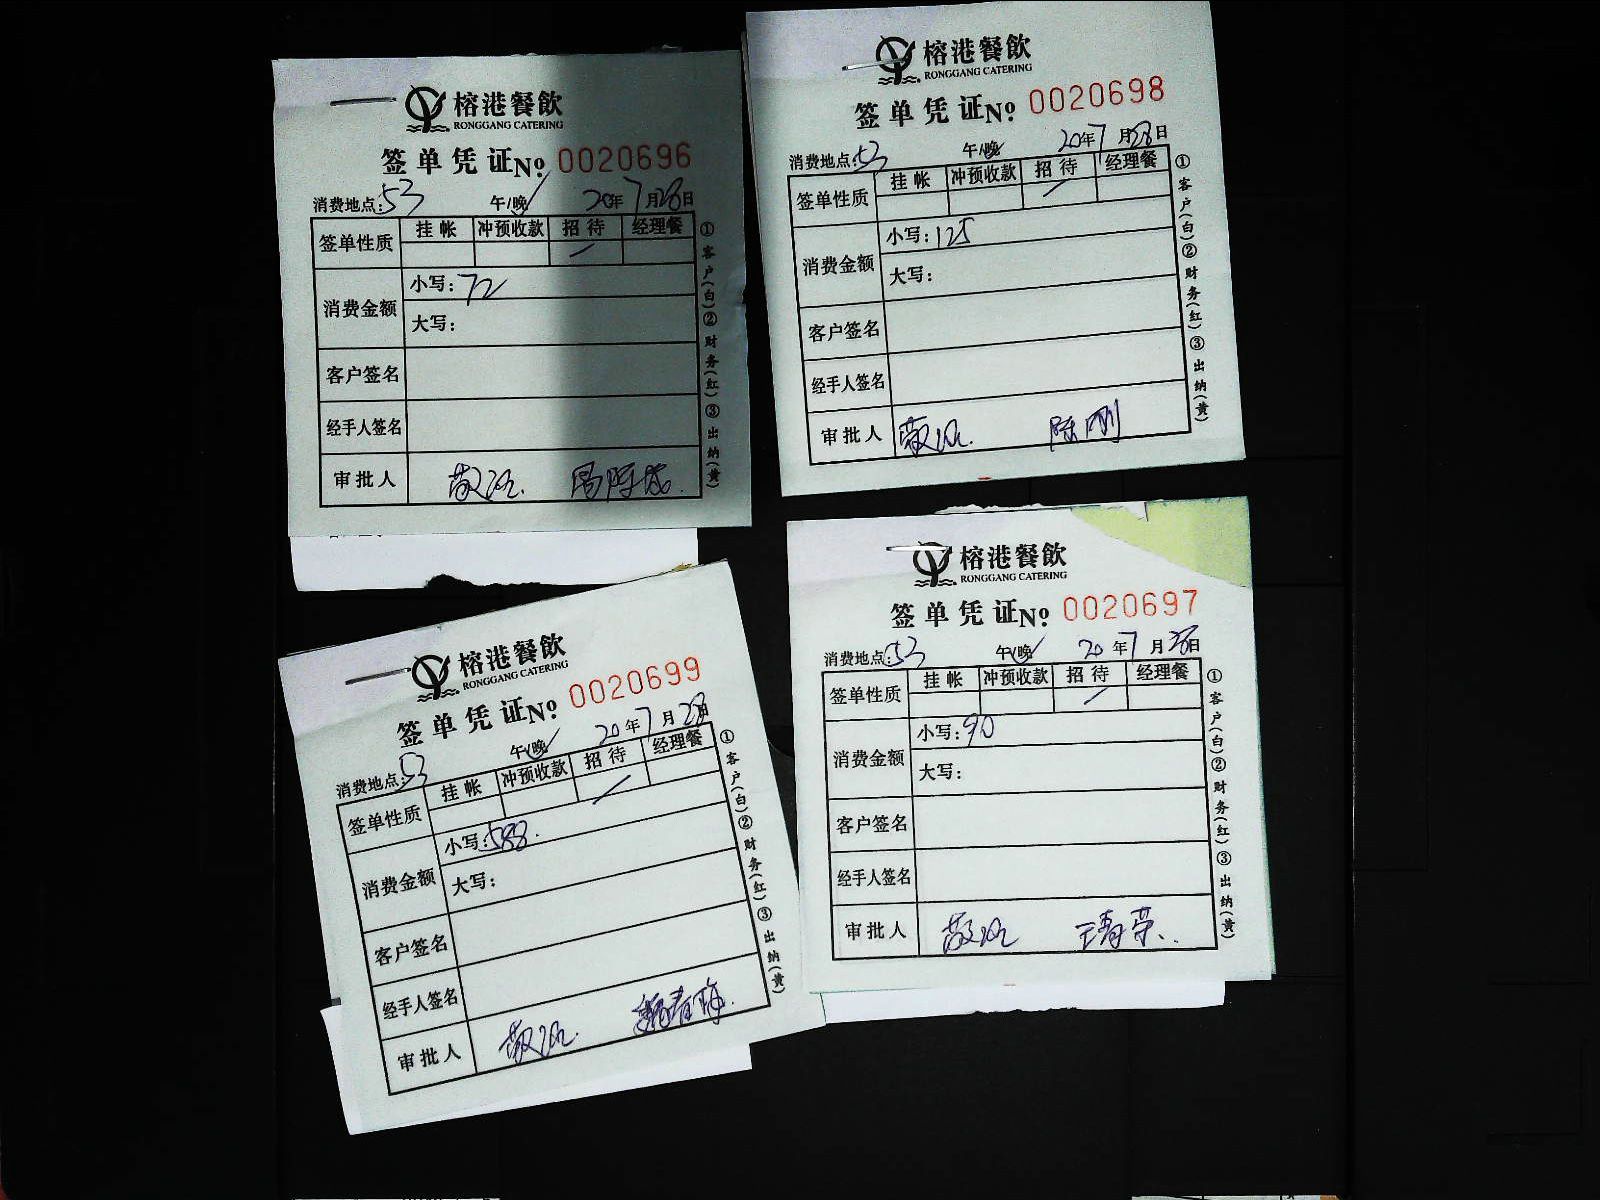 榕港餐飲
RONGGANG CATERING
签单凭证No 0020696
消费地点:53 午/晚 20年7月28日
签单性质 挂帐 冲预收款 招待 经理餐
消费金额 小写:72
大写:
客户签名
经手人签名
审批人
①客户(白)②财务(红)③出纳(黄)
榕港餐飲
RONGGANG CATERING
签单凭证No 0020698
消费地点:53 午/晚 20年7月28日
签单性质 挂帐 冲预收款 招待 经理餐
消费金额 小写:125
大写:
客户签名
经手人签名
审批人 陈刚
①客户(白)②财务(红)③出纳(黄)
榕港餐飲
RONGGANG CATERING
签单凭证No 0020699
消费地点:53 午/晚 20年7月28日
签单性质 挂帐 冲预收款 招待 经理餐
消费金额 小写:588.
大写:
客户签名
经手人签名
审批人
①客户(白)②财务(红)③出纳(黄)
榕港餐飲
RONGGANG CATERING
签单凭证No 0020697
消费地点:53 午/晚 20年7月28日
签单性质 挂帐 冲预收款 招待 经理餐
消费金额 小写:90
大写:
客户签名
经手人签名
审批人
①客户(白)②财务(红)③出纳(黄)